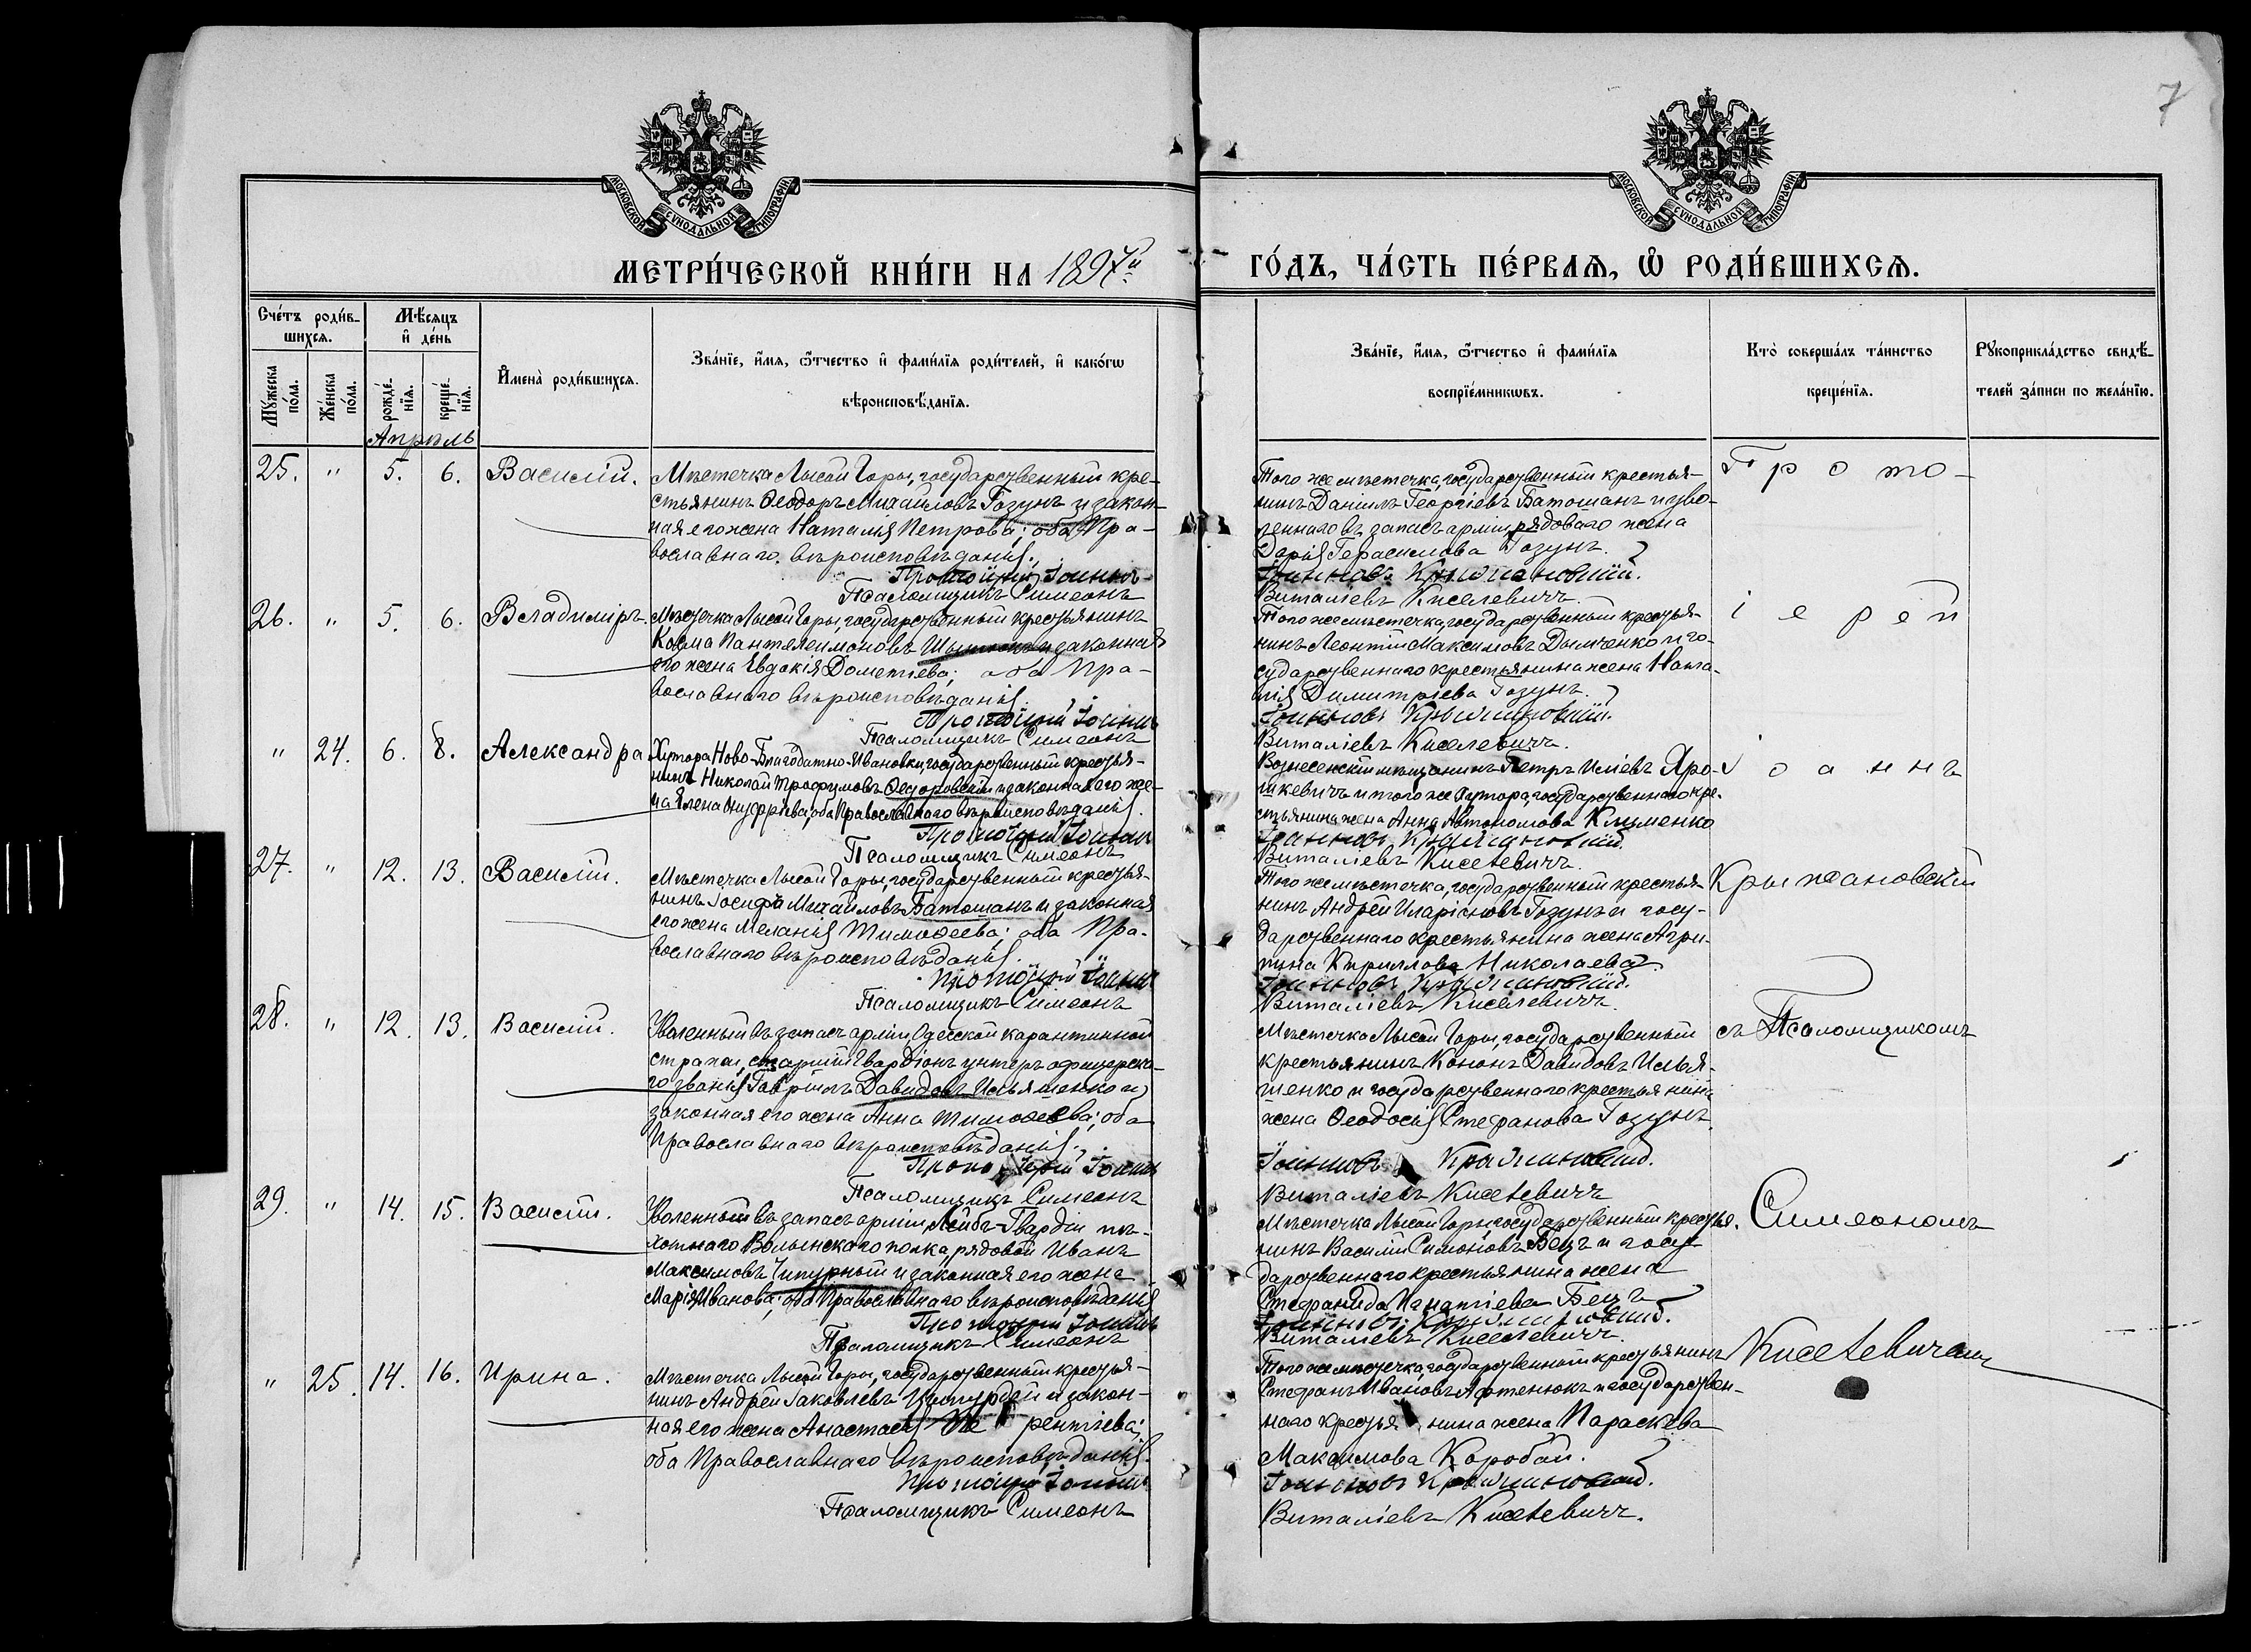 7
МОСКОВСКОЙ СѴНОДАЛЬНОЙ ТИПОГРАФІИ.
МОСКОВСКОЙ СѴНОДАЛЬНОЙ ТИПОГРАФІИ.
МЕТРИ́ЧЕСКОЙ КНИ́ГИ НА 1897й
ГО́ДЪ, ЧА́СТЬ ПЕ́РВАѦ, Ѽ РОДИ́ВШИХСѦ.
Сче́тъ роди́в-
шихсѧ.
Мѣ́сѧцъ
и҆ де́нь
Мꙋ́жеска по́ла.
Же́нска по́ла.
рожде́-
нїѧ.
креще́-
нїѧ.
И҆мена̀ роди́вшихсѧ.
Зва́нїе, и҆́мѧ, ѻ҆́тчество и҆ фами́лїѧ роди́телей, и҆ како́гѡ
вѣроисповѣ́данїѧ.
Зва́нїе, и҆́мѧ, ѻ҆́тчество и҆ фами́лїѧ
воспрїе́мникѡвъ.
Кто̀ соверша́лъ та́инство
креще́нїѧ.
Рꙋкоприкла́дство свидѣ́-
телей за́писи по жела́нїю.
Апрѣль
25. " 5. 6. Василій.
Мѣстечка Лысой Горы, государственный кре-
стьянинъ Ѳеодоръ Михаиловъ Гозунъ и закон-
ная его жена Наталія Петрова; оба Пра-
вославнаго вѣроисповѣданія.
Протоіерей Іоаннъ
Псаломщикъ Симеонъ
Того же мѣстечка, государственный крестья-
нинъ Даніилъ Георгіевъ Батошанъ и уво-
леннаго въ запасъ арміи рядоваго жена
Дарія Герасимова Гозунъ.
Іоанновъ Крыжановскій.
Виталіевъ Киселевичъ.
Прото-
26. " 5. 6. Владиміръ.
Мѣстечка Лысой Горы, государственный крестьянинъ
Косма Пантелеимоновъ и законная
его жена Евдокія Дометіева; оба Пра-
вославнаго вѣроисповѣданія.
Протоіерей Іоаннъ
Псаломщикъ Симеонъ
Того же мѣстечка, государственный крестья-
нинъ Леонтій Максимовъ Дымченко и го-
сударственнаго крестьянина жена Ната-
лія Димитріева Гозунъ.
Іоанновъ Крыжановскій.
Виталіевъ Киселевичъ.
іерей
" 24. 6. 8. Александра
Хутора Ново-Благодатно-Ивановки, государственный крестья-
нинъ Николай Трофимовъ Ѳедоровскій и законная его же-
на Елена Онуфріева; оба Православнаго вѣроисповѣданія.
Протоіерей Іоаннъ
Псаломщикъ Симеонъ
Вознесенскій мѣщанинъ Петръ Иліевъ Яро-
шкевичъ и того же хутора, государственнаго кре-
стьянина жена Анна Автономова Клименко
Іоанновъ Крыжановскій.
Виталіевъ Киселевичъ.
Іоаннъ
27. " 12. 13. Василій.
Мѣстечка Лысой Горы, государственный крестья-
нинъ Іосифъ Михаиловъ Батошанъ и законная
его жена Меланія Тимоѳеева; оба Пра-
вославнаго вѣроисповѣданія.
Протоіерей Іоаннъ
Псаломщикъ Симеонъ
Того же мѣстечка, государственный крестья-
нинъ Андрей Иларіоновъ Гозунъ и госу-
дарственнаго крестьянина жена Агри-
пина Кириллова Николаева.
Іоанновъ Крыжановскій.
Виталіевъ Киселевичъ.
Крыжановскій
28. " 12. 13. Василій.
Уволенный въ запасъ арміи Одесской карантинной
стражи, старшій Гвардіонъ унтеръ офицерска-
го званія Гавріилъ Давидовъ Ильяшенко и
законная его жена Анна Тимоѳеева; оба
Православнаго вѣроисповѣданія.
Протоіерей Іоаннъ
Псаломщикъ Симеонъ
Мѣстечка Лысой Горы, государственный
крестьянинъ Кононъ Давидовъ Илья-
шенко и государственнаго крестьянина
жена Ѳеодосія Стефанова Гозунъ.
Іоанновъ Крыжановскій.
Виталіевъ Киселевичъ
съ Псаломщикомъ
29. " 14. 15. Василій.
Уволенный въ запасъ арміи Лейбъ-Гвардіи пѣ-
хотнаго Волынскаго полка, рядовой Иванъ
Максимовъ Чипурный и законная его жена
Марія Иванова; оба Православнаго вѣроисповѣданія
Протоіерей Іоаннъ
Псаломщикъ Симеонъ
Мѣстечка Лысой Горы, государственный крестья-
нинъ Василій Симоновъ Бецъ и госу-
дарственнаго крестьянина жена
Стефанида Игнатіева Бецъ
Іоанновъ Крыжановскій.
Виталіевъ Киселевичъ.
Симеономъ
" 25. 14. 16. Ирина.
Мѣстечка Лысой Горы, государственный крестья-
нинъ Андрей Іаковлевъ и закон-
ная его жена Анастасія Те рентіева;
оба Православнаго вѣроисповѣданія.
Протоіерей Іоаннъ
Псаломщикъ Симеонъ
Того же мѣстечка, государственный крестьянинъ
Стефанъ Ивановъ Афтенюкъ и государствен-
наго крестья нина жена Параскева
Максимова Коробай.
Іоанновъ Крыжановскій.
Виталіевъ Киселевичъ.
Киселевичемъ